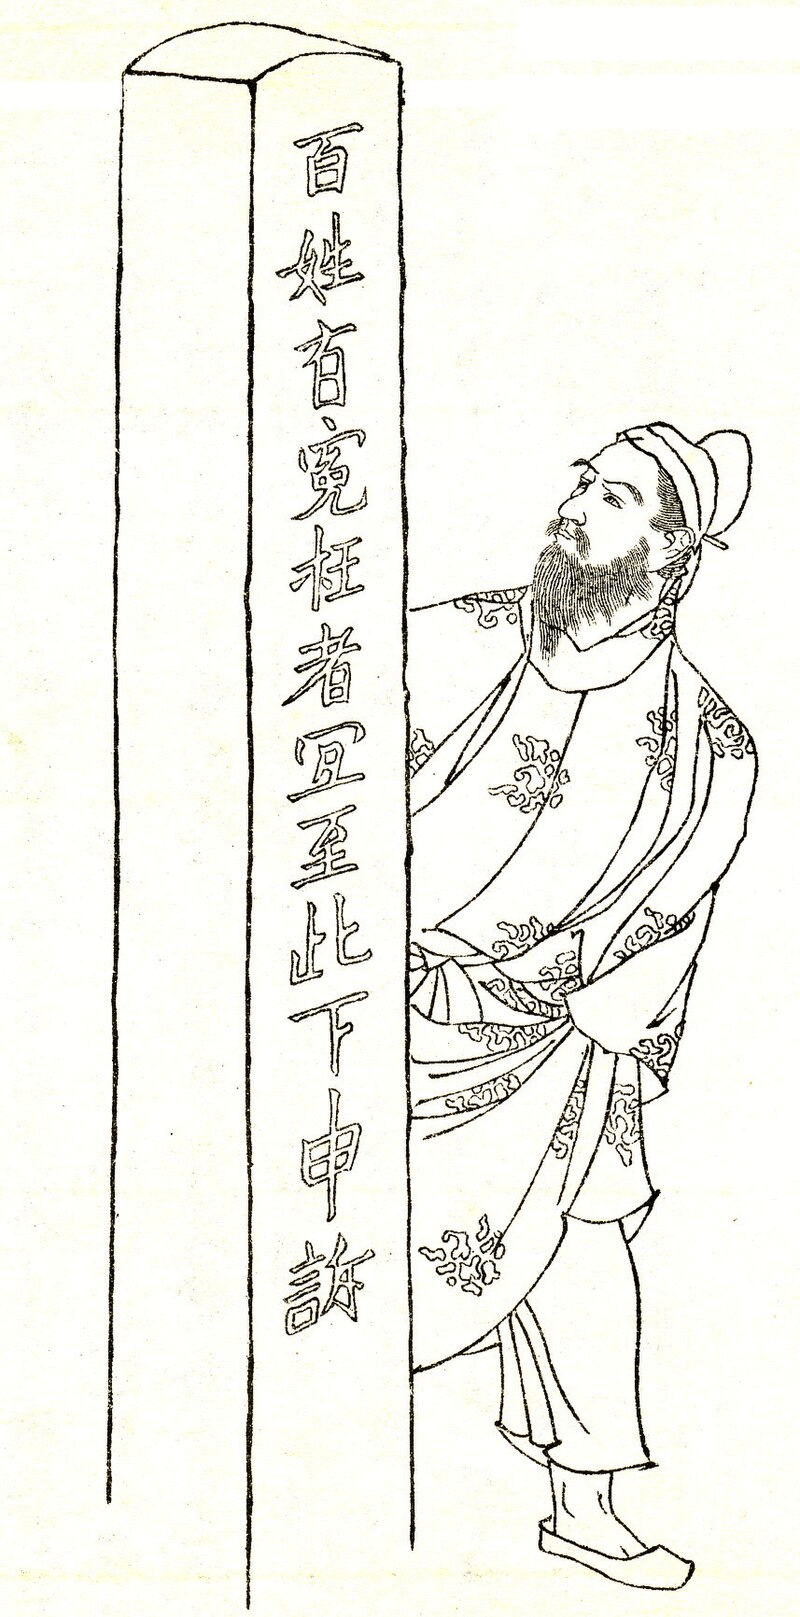 百姓有冤枉者冝至此下申訴